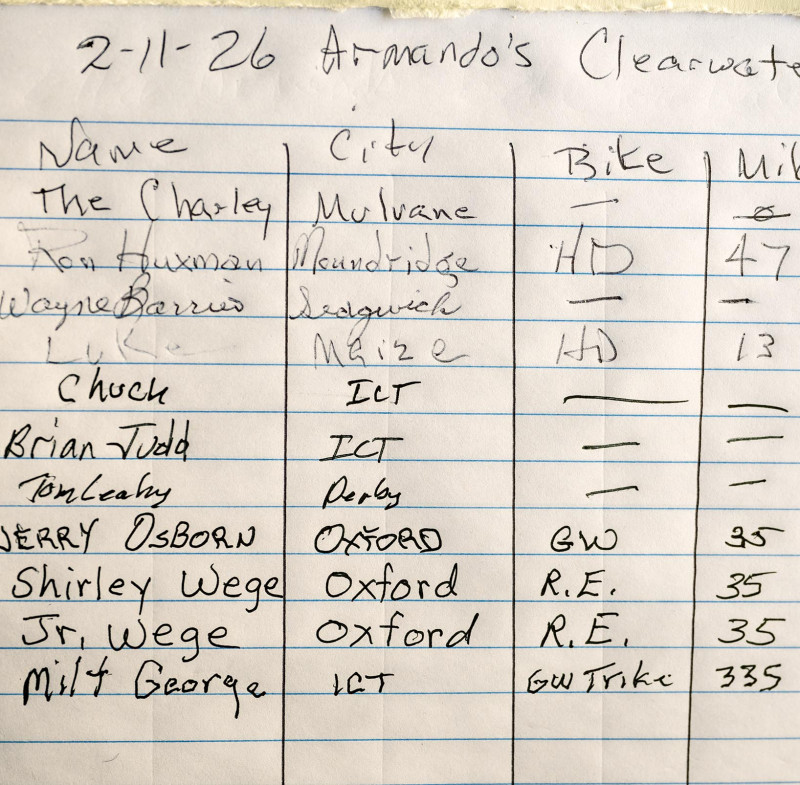 2-11-26 Armando's Clearwate
Name City Bike Mil
The Charley Mulvane — 0
Ron Huxman Moundridge HD 47
Wayne Barrios Sedgwick — —
Luke Maize HD 13
Chuck ICT — —
Brian Judd ICT — —
Tom Leahy Derby — —
JERRY OSBORN OXFORD GW 35
Shirley Wege Oxford R.E. 35
Jr. Wege Oxford R.E. 35
Milt George ICT GW Trike 335